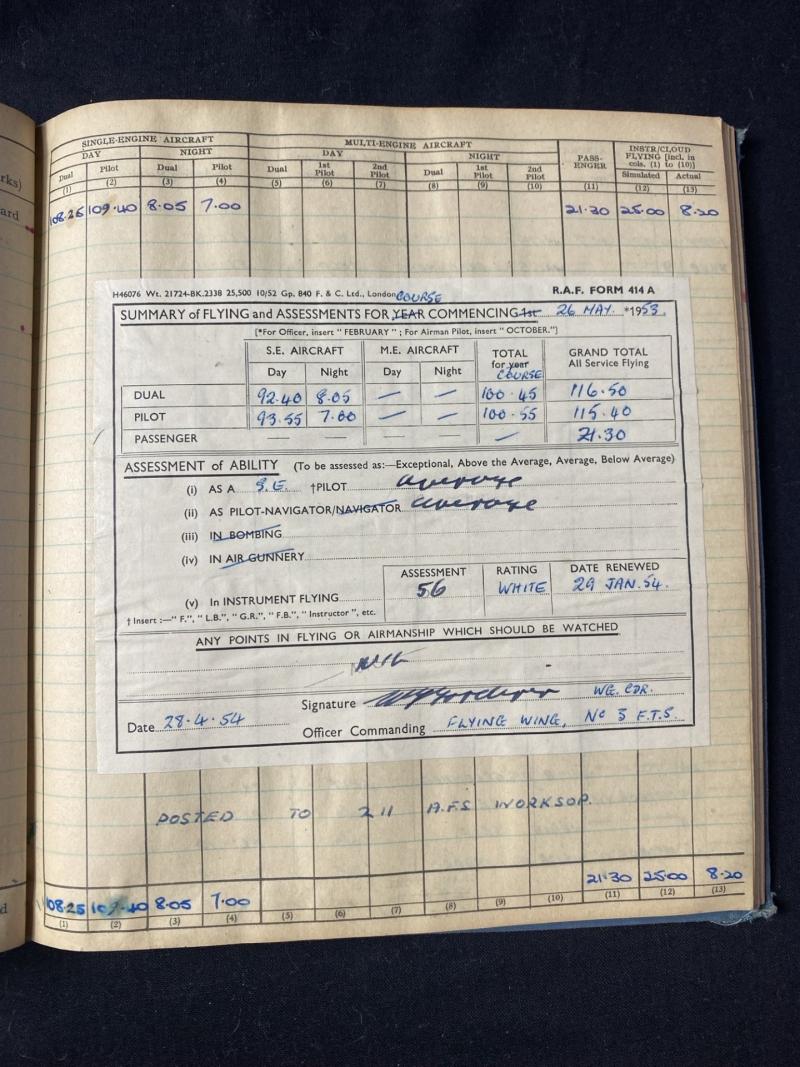 rks)
ard
d
SINGLE-ENGINE AIRCRAFT MULTI-ENGINE AIRCRAFT PASS-ENGER INSTR/CLOUD FLYING [incl. in cols. (1) to (10)]
DAY NIGHT DAY NIGHT
Dual Pilot Dual Pilot Dual 1st Pilot 2nd Pilot Dual 1st Pilot 2nd Pilot Simulated Actual
(1) (2) (3) (4) (5) (6) (7) (8) (9) (10) (11) (12) (13)
108.25 109.40 8.05 7.00 21.30 25.00 8.20
H46076 Wt. 21724-BK.2338 25,500 10/52 Gp. 840 F. & C. Ltd., London R.A.F. FORM 414 A
COURSE
SUMMARY of FLYING and ASSESSMENTS FOR YEAR COMMENCING 1st 26 MAY. *1953.
[*For Officer, insert "FEBRUARY"; For Airman Pilot, insert "OCTOBER."]
S.E. AIRCRAFT M.E. AIRCRAFT TOTAL for year COURSE GRAND TOTAL All Service Flying
Day Night Day Night
DUAL 92.40 8.05 — — 100.45 116.50
PILOT 93.55 7.00 — — 100.55 115.40
PASSENGER — — — 21.30
ASSESSMENT of ABILITY (To be assessed as:—Exceptional, Above the Average, Average, Below Average)
(i) AS A S.E. †PILOT average
(ii) AS PILOT-NAVIGATOR/NAVIGATOR average
(iii) IN BOMBING
(iv) IN AIR GUNNERY
ASSESSMENT RATING DATE RENEWED
(v) In INSTRUMENT FLYING 56 WHITE 29 JAN. 54.
† Insert :—"F.", "L.B.", "G.R.", "F.B.", "Instructor", etc.
ANY POINTS IN FLYING OR AIRMANSHIP WHICH SHOULD BE WATCHED
Nil
Signature WG. CDR.
Date 28.4.54
Officer Commanding FLYING WING, No 3 F.T.S.
POSTED TO 211 A.F.S WORKSOP.
108.25 109.40 8.05 7.00 21.30 25.00 8.20
(1) (2) (3) (4) (5) (6) (7) (8) (9) (10) (11) (12) (13)